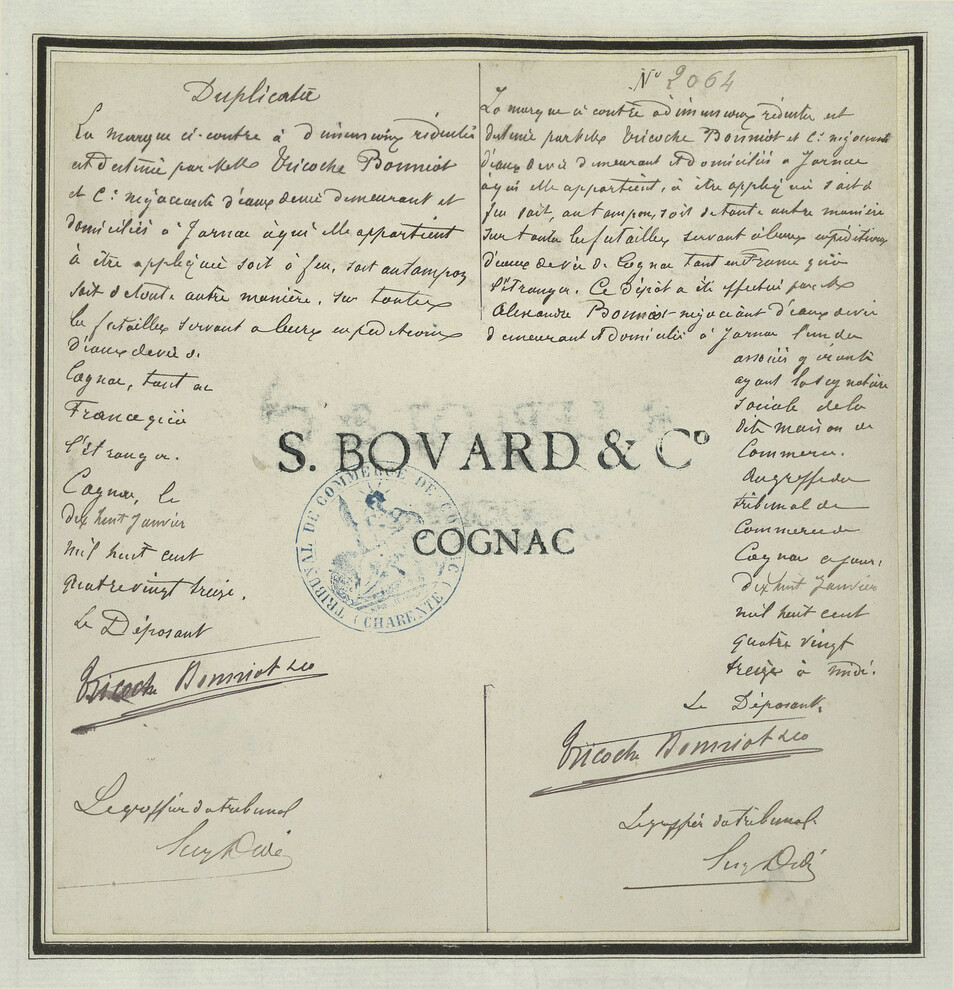 Duplicata
La marque ci-contre à dimensions réduites
est destinée par MM. Tricoche Bonniot
et Cie négociants d'eaux de vie demeurant et
domiciliés à Jarnac à qui elle appartient
à être appliquée soit à feu, soit au tampon
soit de toute autre manière, sur toutes
les futailles servant à leurs expéditions
d'eaux de vie de
Cognac, tant en
France qu'à
l'étranger.
Cognac, le
dix huit Janvier
mil huit cent
quatre vingt treize.
Le Déposant
Tricoche Bonniot & Co
Le greffier du tribunal
No 2064
La marque ci contre à dimensions réduites est
destinée par MM. Tricoche Bonniot et Cie négociants
d'eaux de vie demeurant et domiciliés à Jarnac
à qui elle appartient, à être appliquée soit à
feu soit, au tampon, soit de toute autre manière
sur toutes les futailles servant à leurs expéditions
d'eaux de vie de Cognac tant en France qu'à
l'étranger. Ce dépôt a été effectué par M.
Alexandre Bonniot négociant d'eaux de vie
demeurant et domicilié à Jarnac l'un des
associés gérants
ayant la signature
sociale de la
dite maison de
Commerce.
Au greffe du
tribunal de
Commerce de
Cognac ce jour,
dix huit Janvier
mil huit cent
quatre vingt
treize à midi.
Le Déposant.
Tricoche Bonniot & Co
Le greffier du tribunal
S. BOVARD & Co
COGNAC
TRIBUNAL DE COMMERCE DE COGNAC (CHARENTE)